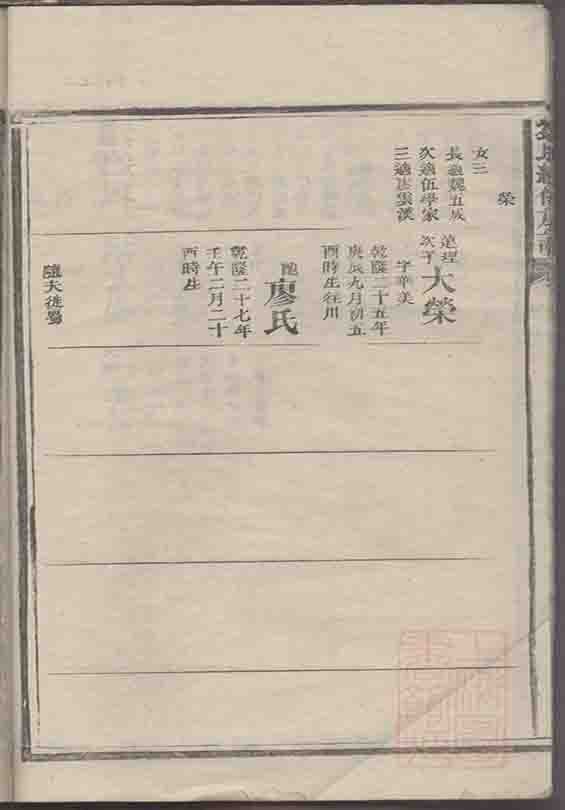 榮
女三
長適魏五成
次適伍學家
三適
遠理
次子
大榮
字華美
乾隆二十五年
庚辰九月初五
酉時生往川
配
廖氏
乾隆二十七年
壬午二月二十
酉時生
隨夫徙蜀